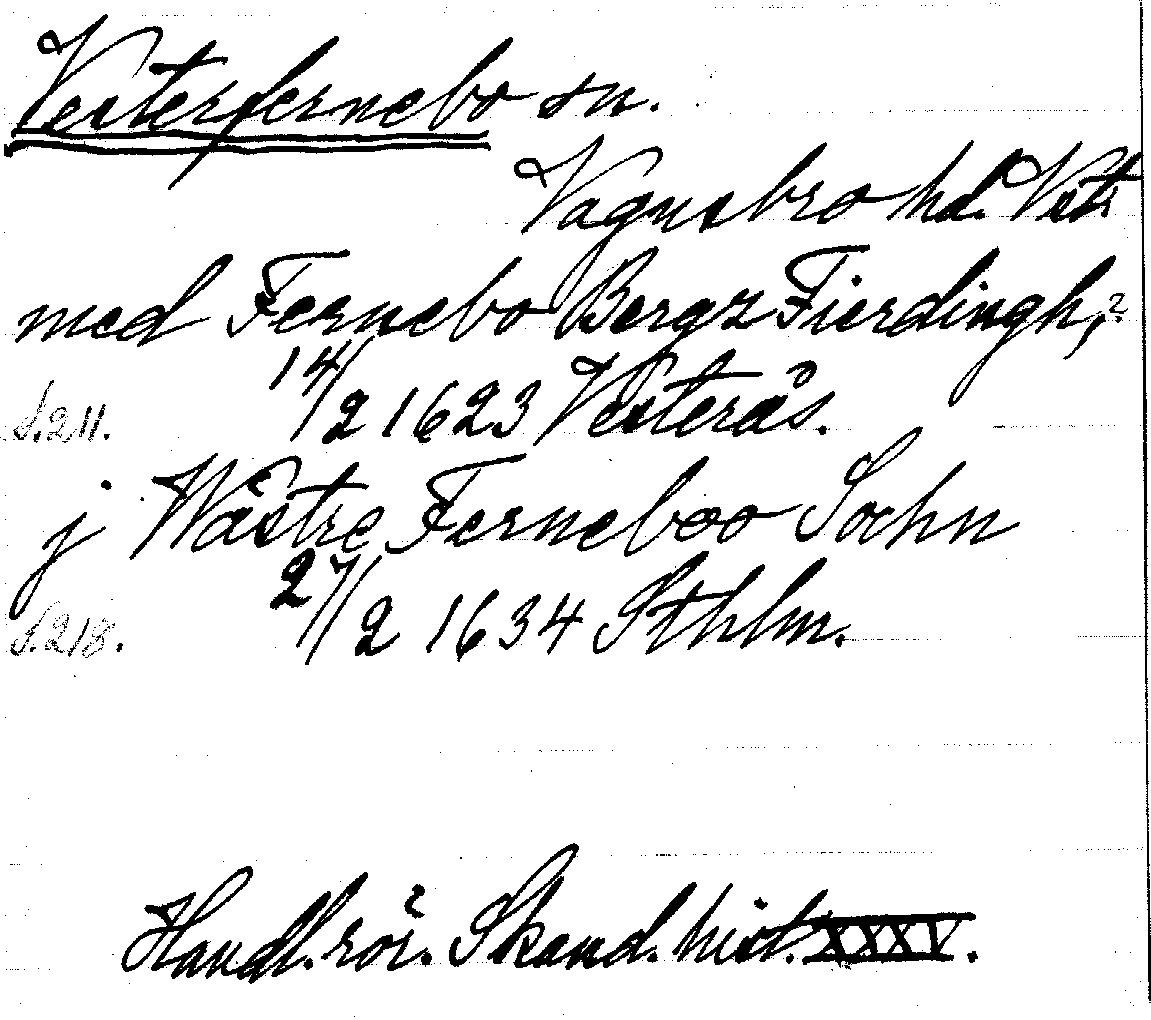 Vesterfernebo sn.
Vagnsbro hd. Vstr
med Fernebo Bergz Fierdingh,?
14/2 1623 Vesterås.
S. 211.
j Wästre Ferneboo Sochn
27/2 1634 Sthlm.
S. 218.
Handl. rör. Skand. hist. XXXV.